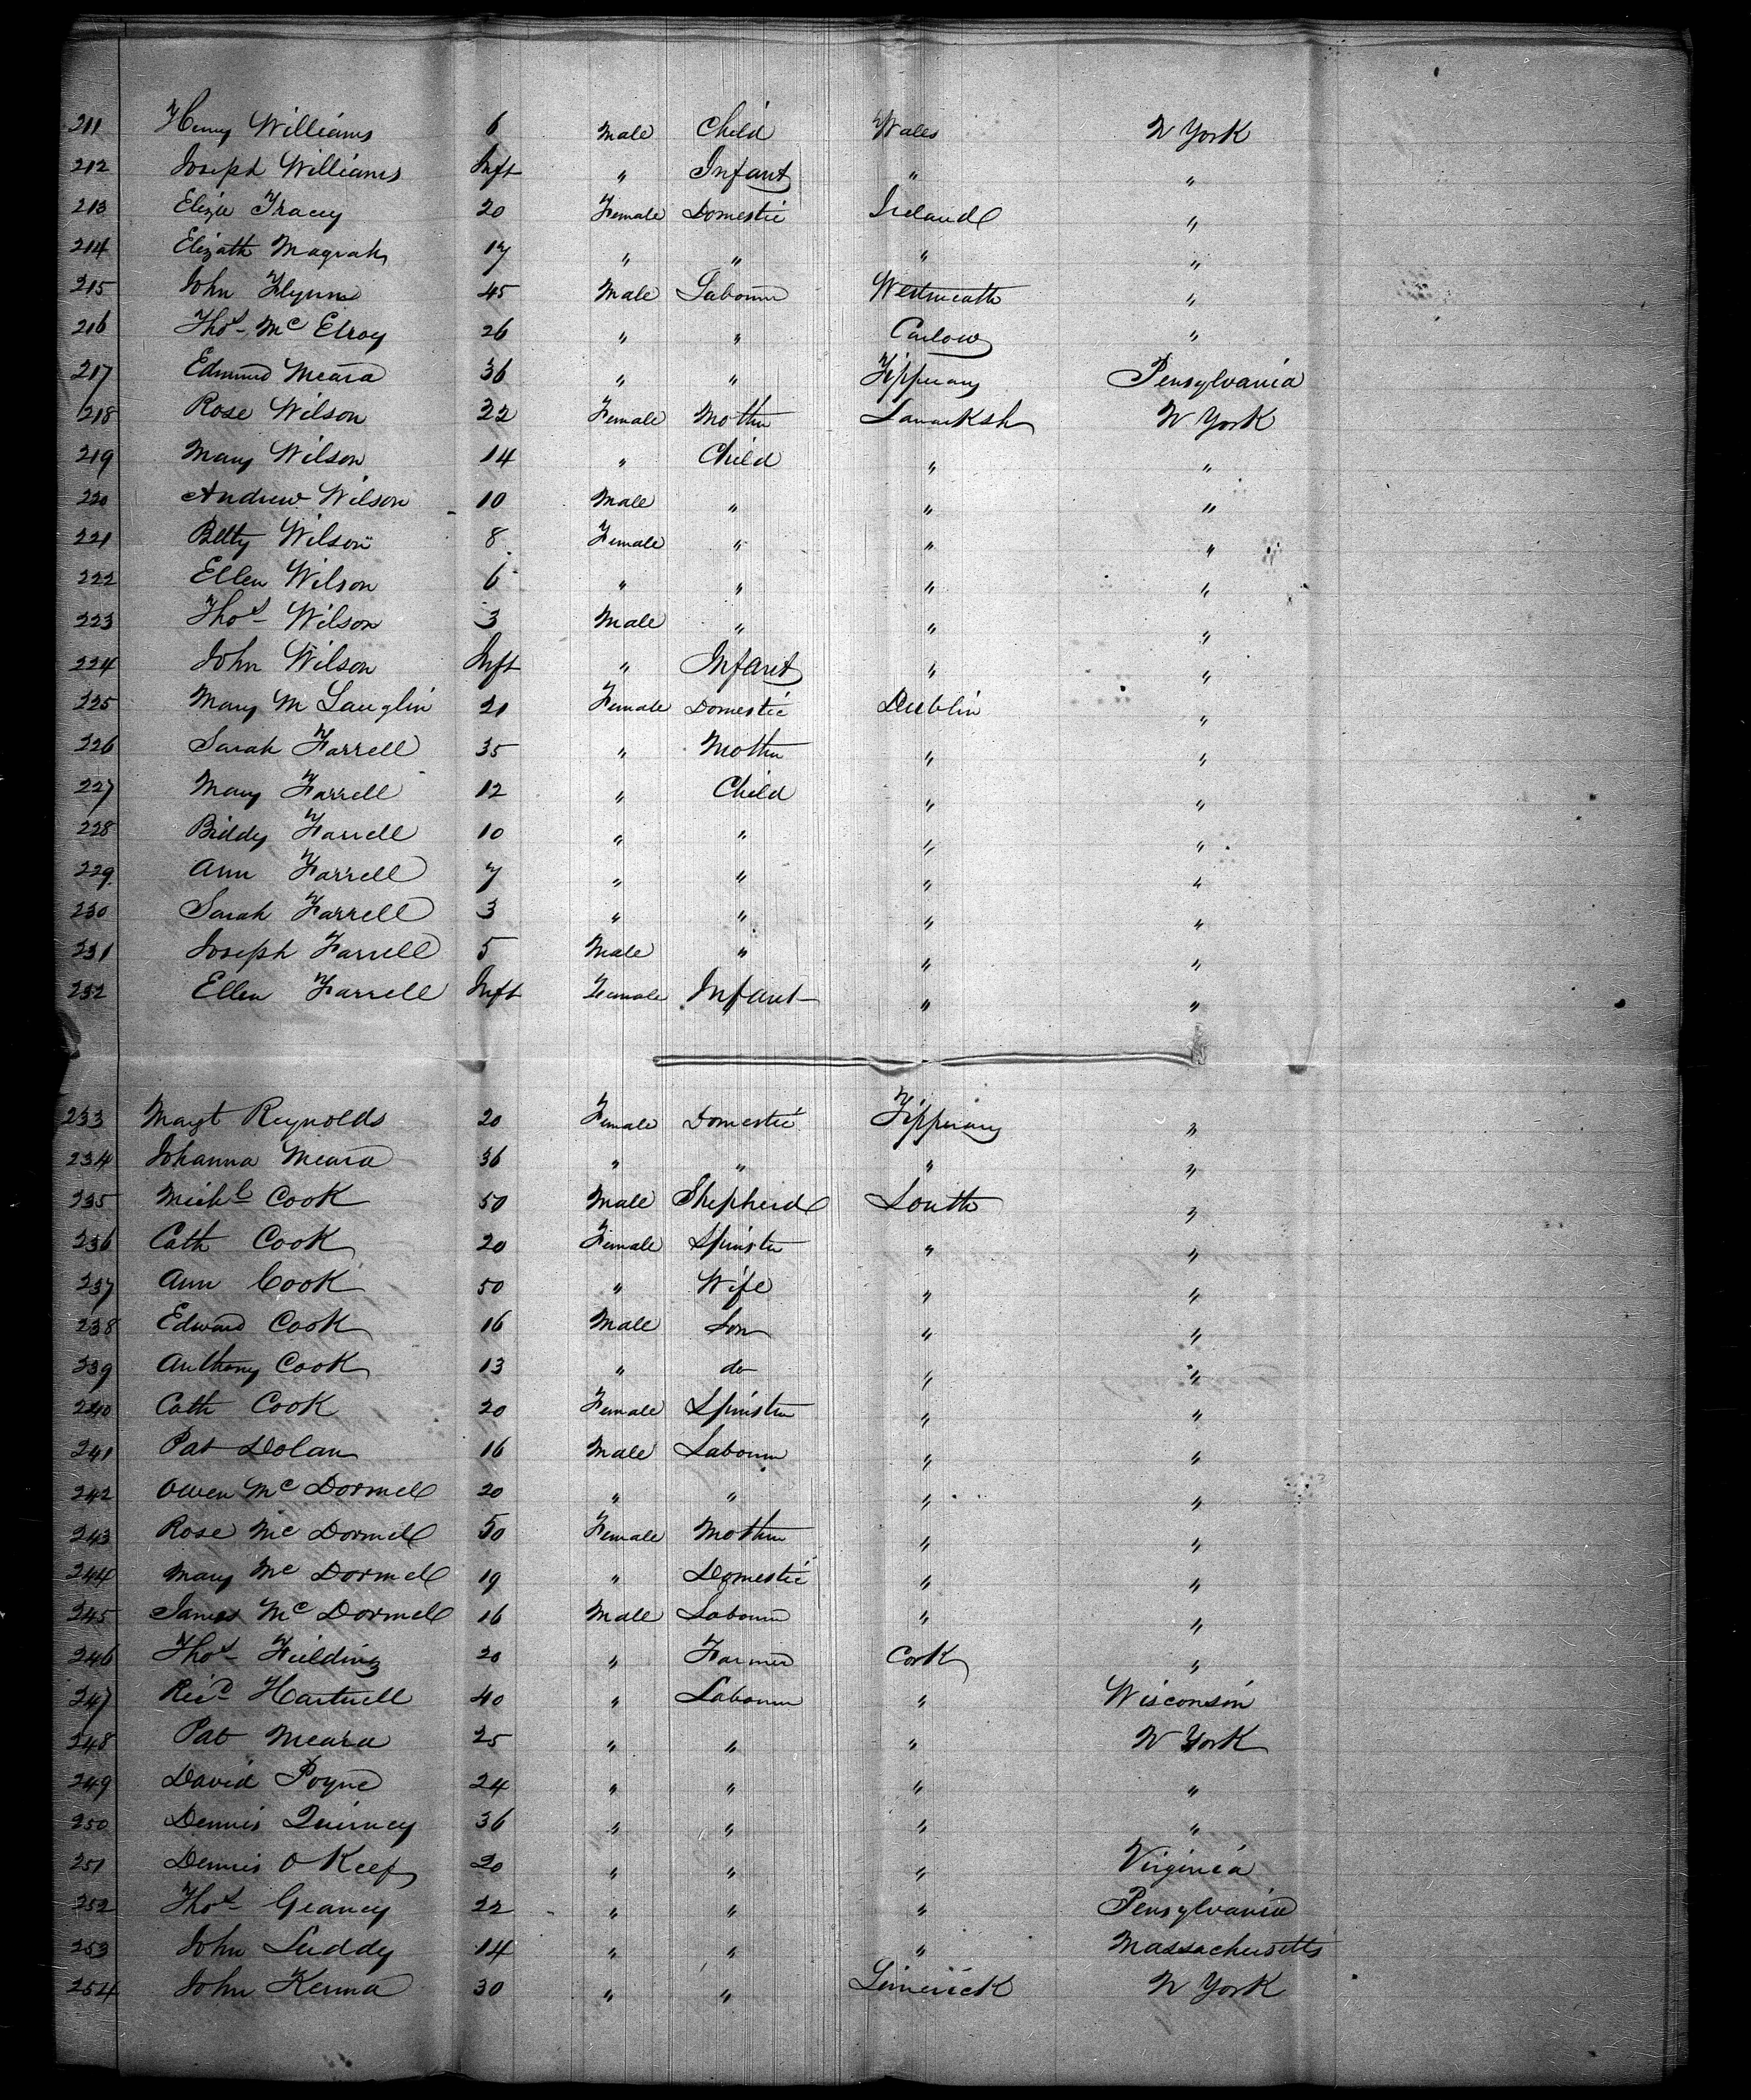 211 Henry Williams 6 Male Child Wales N York
212 Joseph Williams Inft " Infant " "
213 Eliza Tracey 20 Female Domestic Ireland "
214 Elizath Magrah 17 " " " "
215 John Flynn 45 Male Labourer Westmeath "
216 Thos Mc Elroy 26 " " Carlow "
217 Edmund Meara 36 " " Tipperary Pensylvania
218 Rose Wilson 22 Female Mother Lanarksh N York
219 Mary Wilson 14 " Child " "
220 Andrew Wilson 10 Male " " "
221 Betty Wilson 8 Female " " "
222 Ellen Wilson 6 " " " "
223 Thos Wilson 3 Male " " "
224 John Wilson Inft " Infant " "
225 Mary M Lauglin 21 Female Domestic Dublin "
226 Sarah Farrell 35 " Mother " "
227 Mary Farrell 12 " Child " "
228 Biddy Farrell 10 " " " "
229 Ann Farrell 7 " " " "
230 Sarah Farrell 3 " " " "
231 Joseph Farrell 5 Male " " "
232 Ellen Farrell Inft Female Infant " "
233 Magt Reynolds 20 Female Domestic Tipperary "
234 Johanna Meara 36 " " " "
235 Michl Cook 50 Male Shepherd Louth "
236 Cath Cook 20 Female Spinster " "
237 Ann Cook 50 " Wife " "
238 Edward Cook 16 Male Son " "
239 Anthony Cook 13 " do " "
240 Cath Cook 20 Female Spinster " "
241 Pat Dolan 16 Male Labourer " "
242 Owen Mc Dormell 20 " " " "
243 Rose Mc Dormell 50 Female Mother " "
244 Mary Mc Dormell 19 " Domestic " "
245 James Mc Dormell 16 Male Labourer " "
246 Thos Feilding 20 " Farmer Cork "
247 Ricd Hartnell 40 " Labourer " Wisconsin
248 Pat Meara 25 " " " N York
249 David Poyne 24 " " " "
250 Dennis Quinney 36 " " " "
251 Dennis O Keef 20 " " " Virginia
252 Thos Geaney 22 " " " Pensylvania
253 John Luddy 14 " " " Massachusetts
254 John Kenna 30 " " Limerick N York